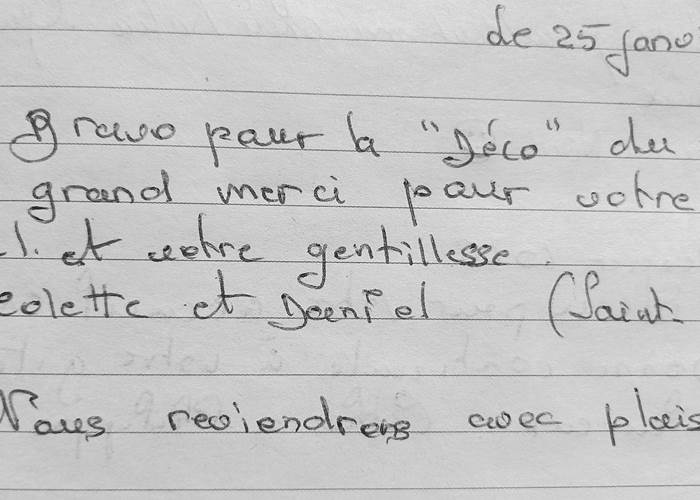 de 25 janv
Bravo pour la "Déco" du
grand merci pour votre
l. et votre gentillesse.
Colette et Daniel (Saint-
Nous reviendrons avec plais